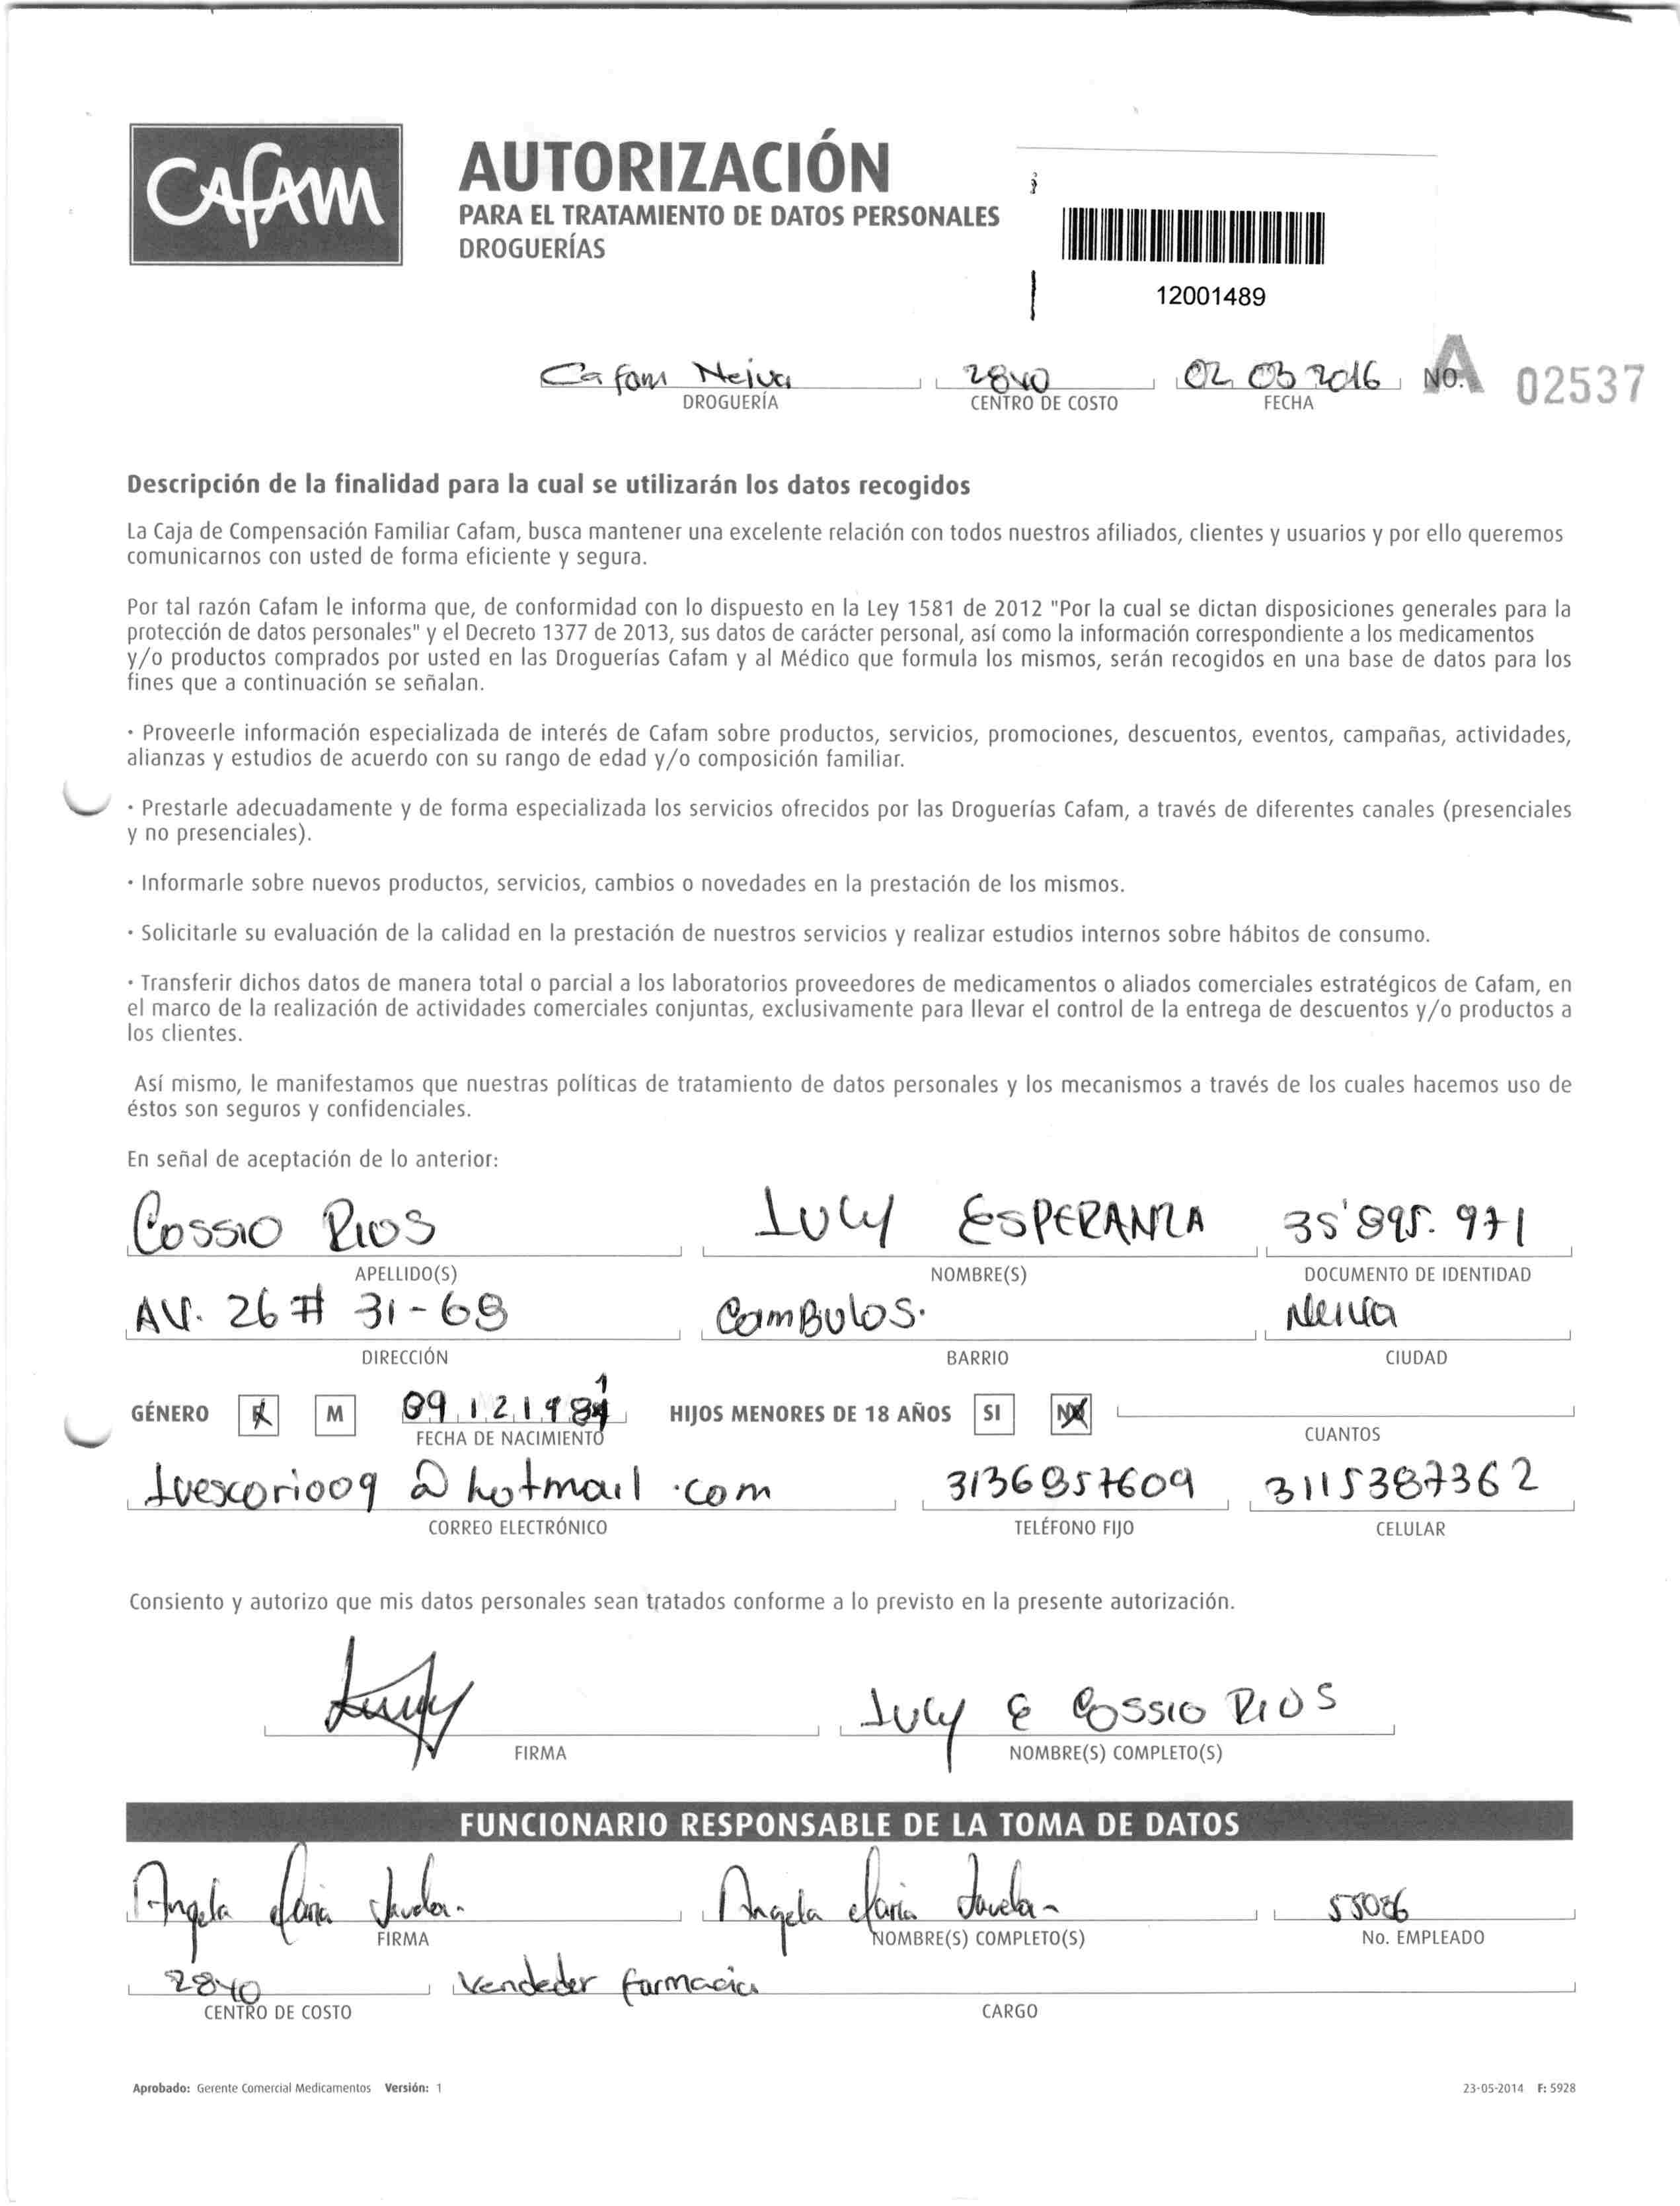 Cafam
AUTORIZACIÓN
PARA EL TRATAMIENTO DE DATOS PERSONALES
DROGUERÍAS
12001489
Cafam Neiva 2840 02 03 2016 No. A 02537
DROGUERÍA CENTRO DE COSTO FECHA
Descripción de la finalidad para la cual se utilizarán los datos recogidos
La Caja de Compensación Familiar Cafam, busca mantener una excelente relación con todos nuestros afiliados, clientes y usuarios y por ello queremos
comunicarnos con usted de forma eficiente y segura.
Por tal razón Cafam le informa que, de conformidad con lo dispuesto en la Ley 1581 de 2012 "Por la cual se dictan disposiciones generales para la
protección de datos personales" y el Decreto 1377 de 2013, sus datos de carácter personal, así como la información correspondiente a los medicamentos
y/o productos comprados por usted en las Droguerías Cafam y al Médico que formula los mismos, serán recogidos en una base de datos para los
fines que a continuación se señalan.
· Proveerle información especializada de interés de Cafam sobre productos, servicios, promociones, descuentos, eventos, campañas, actividades,
alianzas y estudios de acuerdo con su rango de edad y/o composición familiar.
· Prestarle adecuadamente y de forma especializada los servicios ofrecidos por las Droguerías Cafam, a través de diferentes canales (presenciales
y no presenciales).
· Informarle sobre nuevos productos, servicios, cambios o novedades en la prestación de los mismos.
· Solicitarle su evaluación de la calidad en la prestación de nuestros servicios y realizar estudios internos sobre hábitos de consumo.
· Transferir dichos datos de manera total o parcial a los laboratorios proveedores de medicamentos o aliados comerciales estratégicos de Cafam, en
el marco de la realización de actividades comerciales conjuntas, exclusivamente para llevar el control de la entrega de descuentos y/o productos a
los clientes.
Así mismo, le manifestamos que nuestras políticas de tratamiento de datos personales y los mecanismos a través de los cuales hacemos uso de
éstos son seguros y confidenciales.
En señal de aceptación de lo anterior:
Cossio Rios Luly ESPERANZA 35'895.971
APELLIDO(S) NOMBRE(S) DOCUMENTO DE IDENTIDAD
AV. 26 # 31-68 CamBulos. Neiva
DIRECCIÓN BARRIO CIUDAD
GÉNERO F M 09 12 198 HIJOS MENORES DE 18 AÑOS SI NO
FECHA DE NACIMIENTO CUANTOS
luescorioo9@hotmail.com 3136857609 3115387362
CORREO ELECTRÓNICO TELÉFONO FIJO CELULAR
Consiento y autorizo que mis datos personales sean tratados conforme a lo previsto en la presente autorización.
Luly E Cossio Rios
FIRMA NOMBRE(S) COMPLETO(S)
FUNCIONARIO RESPONSABLE DE LA TOMA DE DATOS
Angela Maria Angela Maria 55086
FIRMA NOMBRE(S) COMPLETO(S) No. EMPLEADO
2840 Vendedor farmacia
CENTRO DE COSTO CARGO
Aprobado: Gerente Comercial Medicamentos Versión: 1 23-05-2014 F: 5928